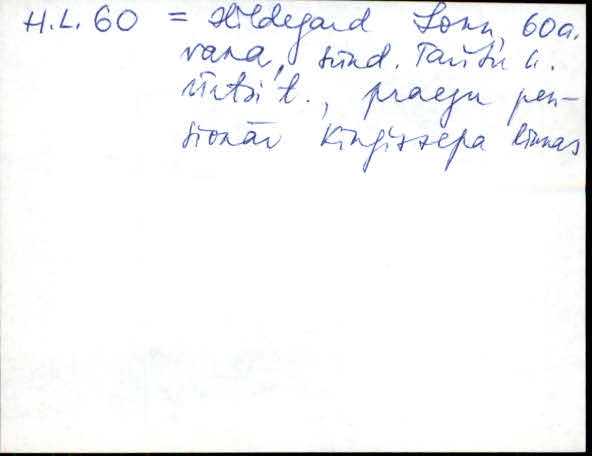 H.L. 60 = Hildegard Lonn, 60a.
vana, sünd. k.
t., praegu pen-
sionär Kingissepa linnas